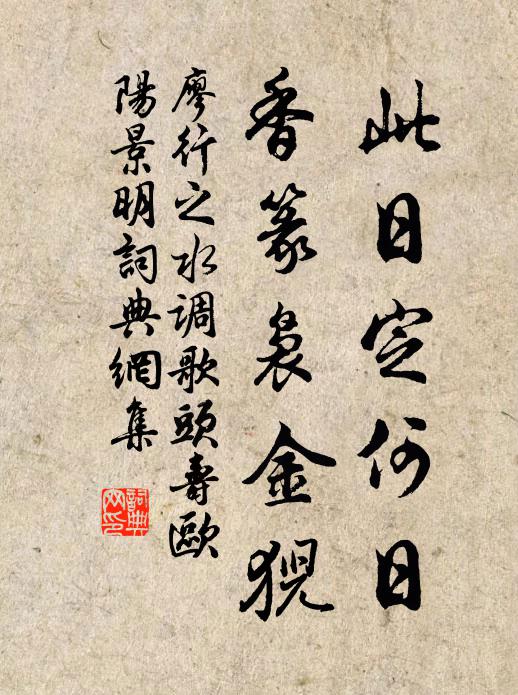 此日定何日
香篆袅金猊
廖行之水调歌頭壽歐
陽景明詞典網集
詞典
网印